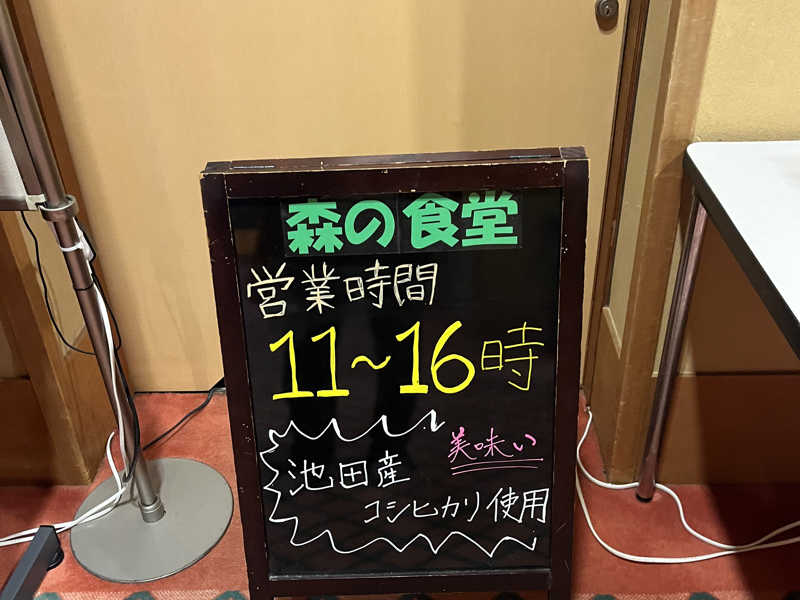 森の食堂
営業時間
11~16時
美味い
池田産
コシヒカリ使用